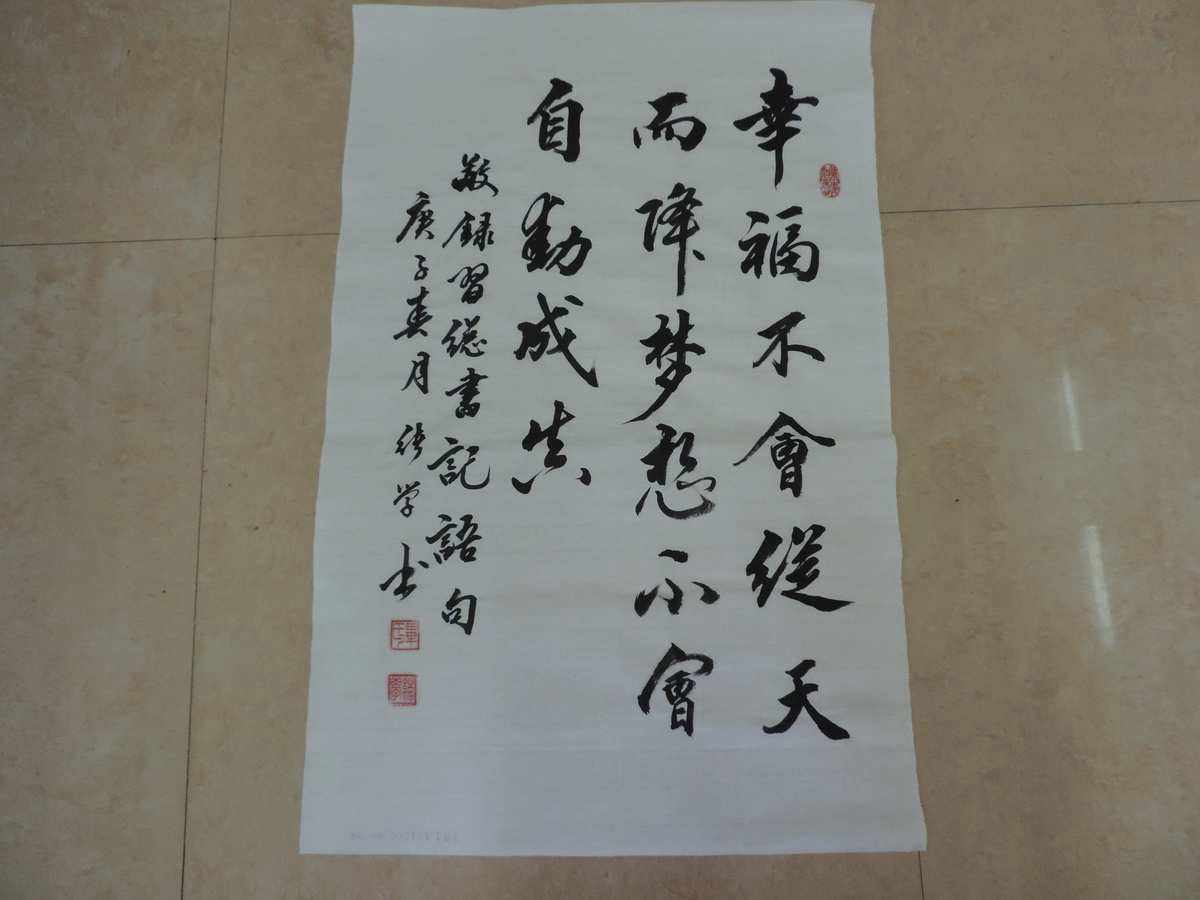 幸福不會從天
而降梦想不會
自動成真
敬録習總書記語句
庚子春月 學书